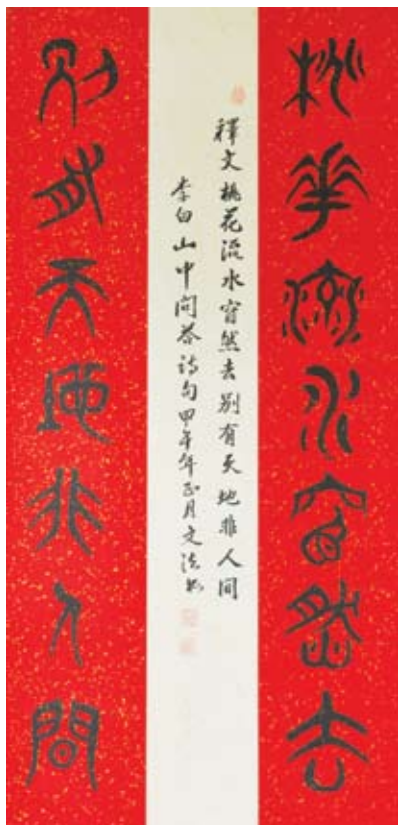 桃華流水窅然去
釋文桃花流水窅然去别有天地非人间
李白山中问荅诗句甲午年正月文法书
別有天地非人間